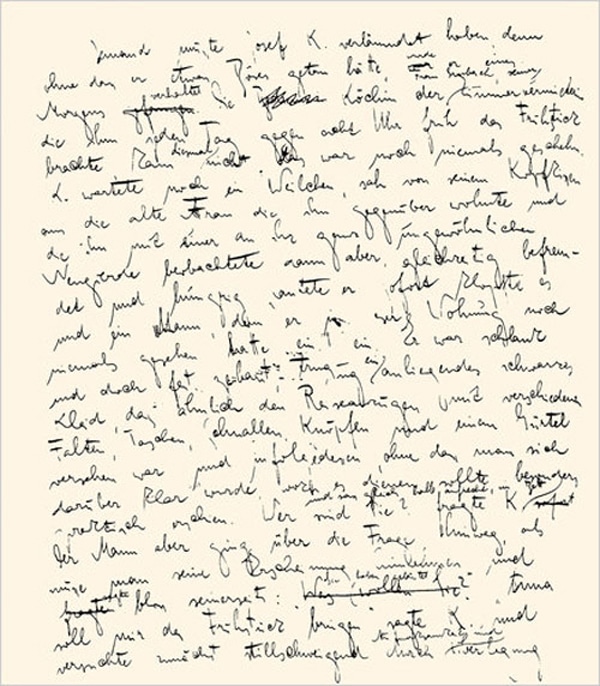 jemand müsste Josef K. verläumdet haben denn
ohne dass er etwas Böses getan hätte, wurde er eines
Morgens gefangen verhaftet. Die Köchin der Zimmervermieterin
Frau Grubach,
die ihm jeden Tag gegen acht Uhr früh das Frühstück
brachte kam diesmal nicht. Das war noch niemals geschehn.
K. wartete noch ein Weilchen, sah von seinem Kopfkissen
aus die alte Frau die ihm gegenüber wohnte und
die ihn mit einer an ihr ganz ungewöhnlichen
Neugierde beobachtete dann aber, gleichzeitig befrem-
det und hungrig, läutete er. Sofort klopfte es
und ein Mann, den er in dieser Wohnung noch
niemals gesehen hatte trat ein. Er war schlank
und doch fest gebaut, er trug ein anliegendes schwarzes
Kleid, das ähnlich den Reiseanzügen mit verschiedenen
Falten, Taschen, Schnallen, Knöpfen und einem Gürtel
versehen war und infolgedessen, ohne dass man sich
darüber klar wurde, wozu es dienen sollte, besonders
praktisch erschien. Wer sind Sie? fragte K.
und sass gleich halb aufrecht im Bett
Der Mann aber ging über die Frage hinweg, als
müsse man seine Erscheinung hinnehmen und
fragte sagte bloss seinerseits: Was wollen Sie? Anna
Sie haben geläutet?
soll mir das Frühstück bringen sagte K. und
versuchte zunächst stillschweigend durch Aufmerksamkeit und Überlegung